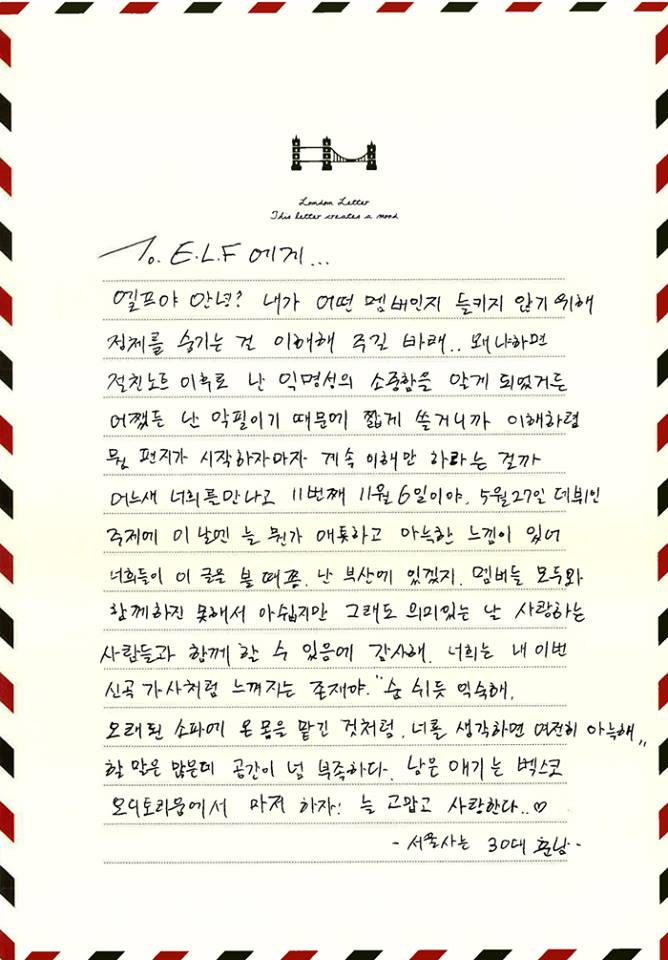 London Letter
This letter creates a mood
To. E.L.F 에게...
엘프야 안녕? 내가 어떤 멤버인지 들키지 않기 위해
정체를 숨기는 건 이해해 주길 바래.. 왜냐하면
절친노트 이후로 난 익명성의 소중함을 알게 되었거든
어쨌든 난 악필이기 때문에 짧게 쓸거니까 이해하렴
뭔 편지가 시작하자마자 계속 이해만 하라는 걸까
어느새 너희를 만나고 11번째 11월 6일이야. 5월 27일 데뷔인
주제에 이 날엔 늘 뭔가 애틋하고 아늑한 느낌이 있어
너희들이 이 글을 볼 때쯤. 난 부산에 있겠지. 멤버들 모두와
함께하진 못해서 아쉽지만 그래도 의미있는 날 사랑하는
사람들과 함께 할 수 있음에 감사해. 너희는 내 이번
신곡 가사처럼 느껴지는 존재야. "숨 쉬듯 익숙해.
오래된 소파에 온 몸을 맡긴 것처럼. 너를 생각하면 여전히 아늑해"
할 말은 많은데 공간이 넘 부족하다. 남은 얘기는 벡스코
오디토리움에서 마저 하자! 늘 고맙고 사랑한다..♡
- 서울사는 30대 훈남 -